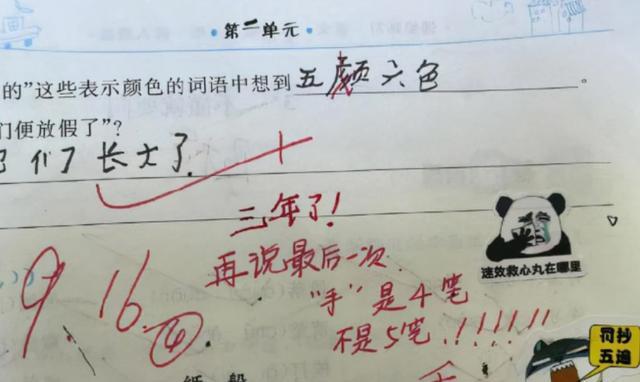 ·第二单元·
的"这些表示颜色的词语中想到 五颜六色 。
们便放假了"？
们了 长大了.
三年了！
再说最后一次.
"手"是4笔
不是5笔.！！！！！！！
9.16.
④
速效救心丸在哪里
罚抄
五遍